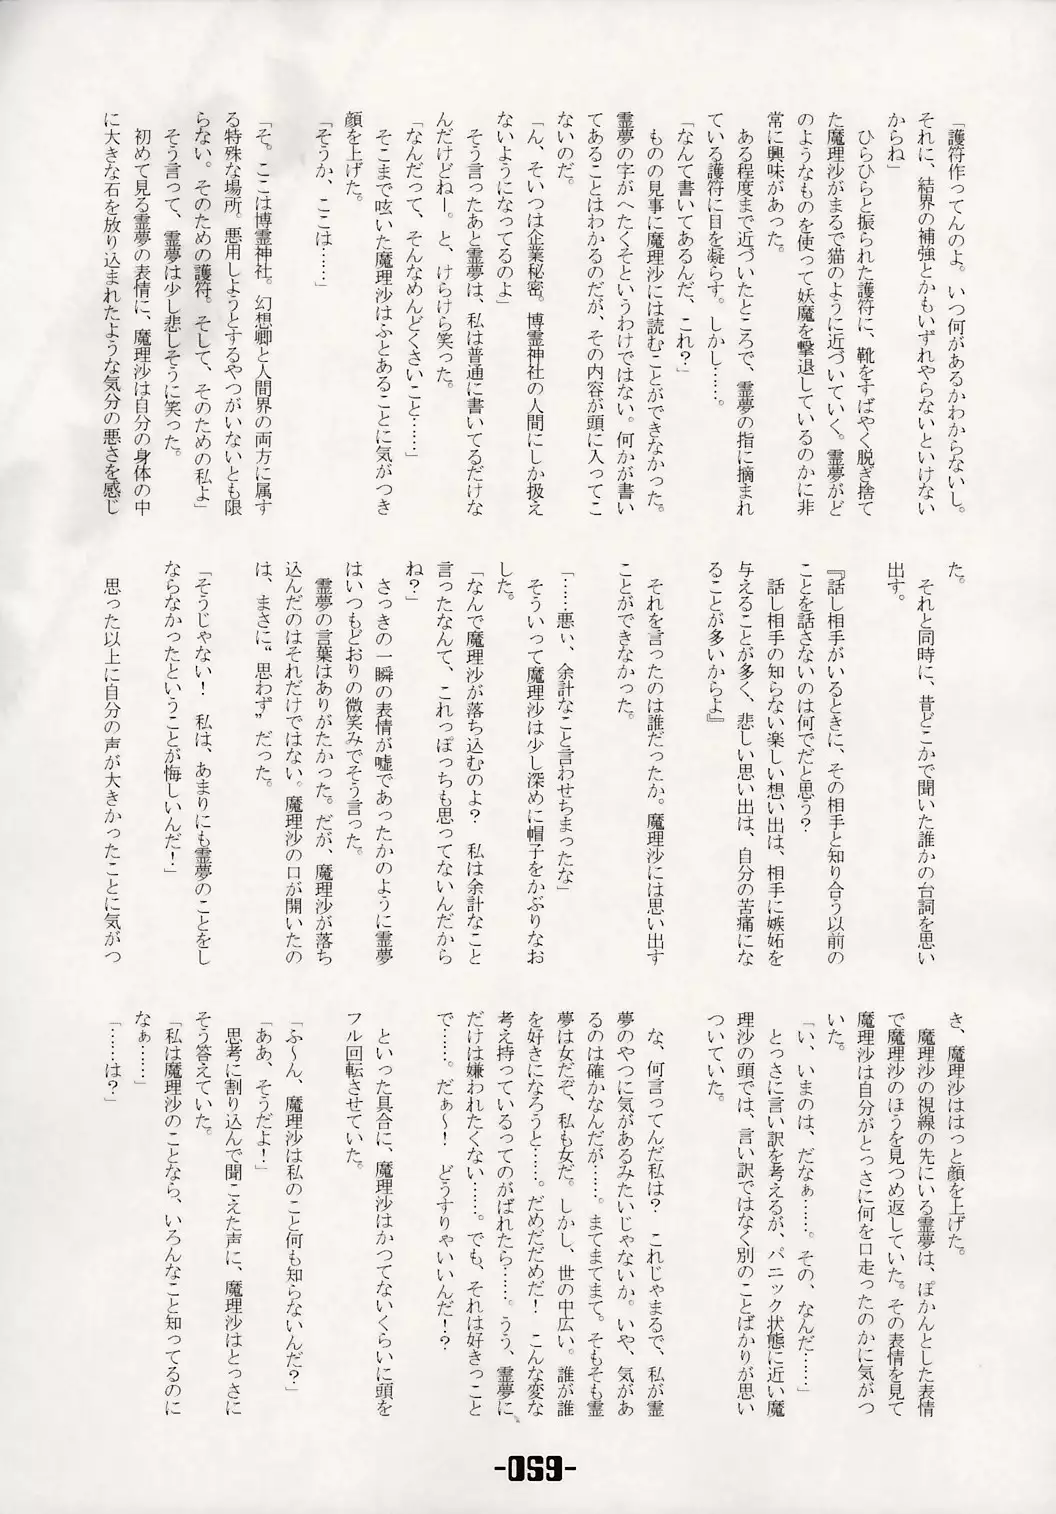 「護符作ってんのよ。いつ何があるかわからないし。
それに、結界の補強とかもいずれやらないといけない
からね」
　ひらひらと振られた護符に、靴をすばやく脱ぎ捨て
た魔理沙がまるで猫のように近づいていく。霊夢がど
のようなものを使って妖魔を撃退しているのかに非
常に興味があった。
　ある程度まで近づいたところで、霊夢の指に摘まれ
ている護符に目を凝らす。しかし……。
「なんて書いてあるんだ、これ？」
　ものの見事に魔理沙には読むことができなかった。
霊夢の字がへたくそというわけではない。何かが書い
てあることはわかるのだが、その内容が頭に入ってこ
ないのだ。
「ん、そいつは企業秘密。博霊神社の人間にしか扱え
ないようになってるのよ」
　そう言ったあと霊夢は、私は普通に書いてるだけな
んだけどねー。と、けらけら笑った。
「なんだって、そんなめんどくさいこと……」
　そこまで呟いた魔理沙はふとあることに気がつき
顔を上げた。
「そうか、ここは……」
「そ。ここは博霊神社。幻想郷と人間界の両方に属す
る特殊な場所。悪用しようとするやつがいないとも限
らない。そのための護符。そして、そのための私よ」
　そう言って、霊夢は少し悲しそうに笑った。
　初めて見る霊夢の表情に、魔理沙は自分の身体の中
に大きな石を放り込まれたような気分の悪さを感じ
た。
　それと同時に、昔どこかで聞いた誰かの台詞を思い
出す。
『話し相手がいるときに、その相手と知り合う以前の
ことを話さないのは何でだと思う？
　話し相手の知らない楽しい想い出は、相手に嫉妬を
与えることが多く、悲しい思い出は、自分の苦痛にな
ることが多いからよ』
　それを言ったのは誰だったか。魔理沙には思い出す
ことができなかった。
「……悪い、余計なこと言わせちまったな」
　そういって魔理沙は少し深めに帽子をかぶりなお
した。
「なんで魔理沙が落ち込むのよ？　私は余計なこと
言ったなんて、これっぽっちも思ってないんだから
ね？」
　さっきの一瞬の表情が嘘であったかのように霊夢
はいつもどおりの微笑みでそう言った。
　霊夢の言葉はありがたかった。だが、魔理沙が落ち
込んだのはそれだけではない。魔理沙の口が開いたの
は、まさに“思わず”だった。
「そうじゃない！　私は、あまりにも霊夢のことをし
ならなかったということが悔しいんだ！」
　思った以上に自分の声が大きかったことに気がつ
き、魔理沙ははっと顔を上げた。
　魔理沙の視線の先にいる霊夢は、ぽかんとした表情
で魔理沙のほうを見つめ返していた。その表情を見て
魔理沙は自分がとっさに何を口走ったのかに気がつ
いた。
「い、いまのは、だなぁ……。その、なんだ……」
　とっさに言い訳を考えるが、パニック状態に近い魔
理沙の頭では、言い訳ではなく別のことばかりが思い
ついていた。
　な、何言ってんだ私は？　これじゃまるで、私が霊
夢のやつに気があるみたいじゃないか。いや、気があ
るのは確かなんだが……。まてまてまて。そもそも霊
夢は女だぞ、私も女だ。しかし、世の中広い。誰が誰
を好きになろうと……。だめだだめだ！　こんな変な
考え持っているってのがばれたら……。うう、霊夢に
だけは嫌われたくない……。でも、それは好きっこと
で……。だぁ～！　どうすりゃいいんだ！？
　といった具合に、魔理沙はかつてないくらいに頭を
フル回転させていた。
「ふ～ん、魔理沙は私のこと何も知らないんだ？」
「ああ、そうだよ！」
　思考に割り込んで聞こえた声に、魔理沙はとっさに
そう答えていた。
「私は魔理沙のことなら、いろんなこと知ってるのに
なぁ……」
「……は？」
-059-